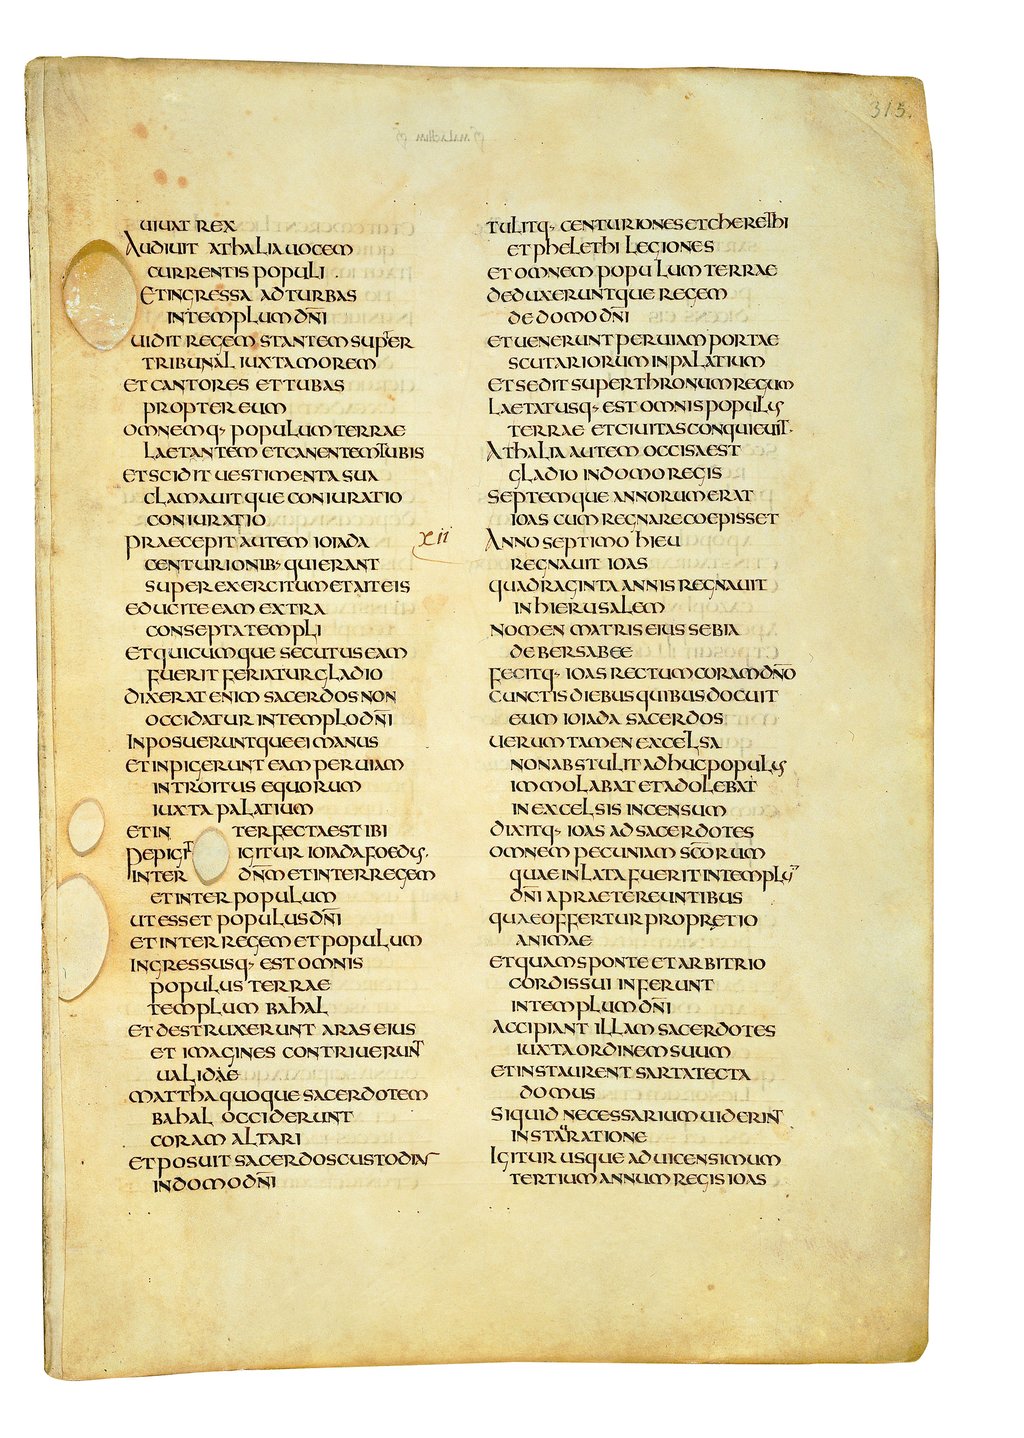 315.
UIUAT REX
AUDIUIT ATHALIA UOCEM
CURRENTIS POPULI
ET INGRESSA AD TURBAS
IN TEMPLUM DN̄I
UIDIT REGEM STANTEM SUPER
TRIBUNAL IUXTA MOREM
ET CANTORES ET TUBAS
PROPTER EUM
OMNEMQ· POPULUM TERRAE
LAETANTEM ET CANENTEM TUBIS
ET SCIDIT UESTIMENTA SUA
CLAMAUITQUE CONIURATIO
CONIURATIO
PRAECEPIT AUTEM IOIADA
CENTURIONIB· QUI ERANT
SUPER EXERCITUM ET AIT EIS
EDUCITE EAM EXTRA
CONSEPTA TEMPLI
ET QUICUMQUE SECUTUS EAM
FUERIT FERIATUR GLADIO
DIXERAT ENIM SACERDOS NON
OCCIDATUR IN TEMPLO DN̄I
INPOSUERUNTQUE EI MANUS
ET INPIGERUNT EAM PER UIAM
INTROITUS EQUORUM
IUXTA PALATIUM
ET INTERFECTA EST IBI
PEPIGIT IGITUR IOIADA FOEDUS·
INTER DN̄M ET INTER REGEM
ET INTER POPULUM
UT ESSET POPULUS DN̄I
ET INTER REGEM ET POPULUM
INGRESSUSQ· EST OMNIS
POPULUS TERRAE
TEMPLUM BAHAL
ET DESTRUXERUNT ARAS EIUS
ET IMAGINES CONTRIUERUNT
UALIDAE
MATTHA QUOQUE SACERDOTEM
BAHAL OCCIDERUNT
CORAM ALTARI
ET POSUIT SACERDOS CUSTODIAS
IN DOMO DN̄I
TULITQ· CENTURIONES ET CHERETHI
ET PHELETHI LEGIONES
ET OMNEM POPULUM TERRAE
DEDUXERUNTQUE REGEM
DE DOMO DN̄I
ET UENERUNT PER UIAM PORTAE
SCUTARIORUM IN PALATIUM
ET SEDIT SUPER THRONUM REGUM
LAETATUSQ· EST OMNIS POPULUS
TERRAE ET CIUITAS CONQUIEUIT·
ATHALIA AUTEM OCCISA EST
GLADIO IN DOMO REGIS
SEPTEMQUE ANNORUM ERAT
IOAS CUM REGNARE COEPISSET
XII ANNO SEPTIMO HIEU
REGNAUIT IOAS
QUADRAGINTA ANNIS REGNAUIT
IN HIERUSALEM
NOMEN MATRIS EIUS SEBIA
DE BERSABEE
FECITQ· IOAS RECTUM CORAM DN̄O
CUNCTIS DIEBUS QUIBUS DOCUIT
EUM IOIADA SACERDOS
UERUM TAMEN EXCELSA
NON ABSTULIT ADHUC POPULUS
IMMOLABAT ET ADOLEBAT
IN EXCELSIS INCENSUM
DIXITQ· IOAS AD SACERDOTES
OMNEM PECUNIAM SC̄ORUM
QUAE INLATA FUERIT IN TEMPLUM
DN̄I A PRAETEREUNTIBUS
QUAE OFFERTUR PRO PRETIO
ANIMAE
ET QUAM SPONTE ET ARBITRIO
CORDIS SUI INFERUNT
IN TEMPLUM DN̄I
ACCIPIANT ILLAM SACERDOTES
IUXTA ORDINEM SUUM
ET INSTAURENT SARTATECTA
DOMUS
SI QUID NECESSARIUM UIDERINT
INSTAURATIONE
IGITUR USQUE AD UICENSIMUM
TERTIUM ANNUM REGIS IOAS